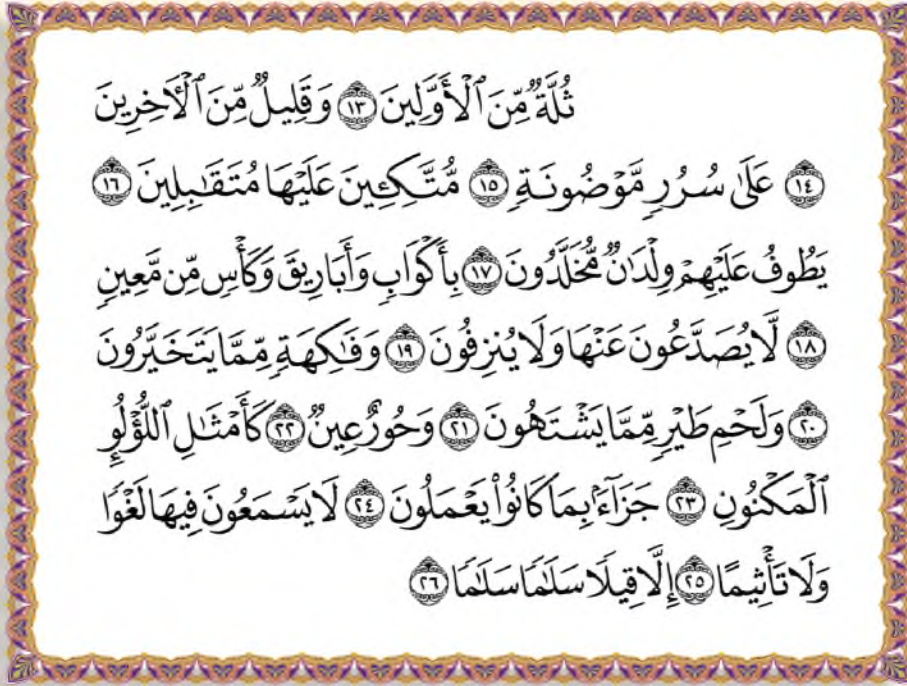 ثُلَّةٌ مِّنَ ٱلْأَوَّلِينَ ١٣ وَقَلِيلٌ مِّنَ ٱلْآخِرِينَ
١٤ عَلَىٰ سُرُرٍ مَّوْضُونَةٍ ١٥ مُّتَّكِـِٔينَ عَلَيْهَا مُتَقَٰبِلِينَ ١٦
يَطُوفُ عَلَيْهِمْ وِلْدَٰنٌ مُّخَلَّدُونَ ١٧ بِأَكْوَابٍ وَأَبَارِيقَ وَكَأْسٍ مِّن مَّعِينٍ
١٨ لَّا يُصَدَّعُونَ عَنْهَا وَلَا يُنزِفُونَ ١٩ وَفَٰكِهَةٍ مِّمَّا يَتَخَيَّرُونَ
٢٠ وَلَحْمِ طَيْرٍ مِّمَّا يَشْتَهُونَ ٢١ وَحُورٌ عِينٌ ٢٢ كَأَمْثَٰلِ ٱللُّؤْلُؤِ
ٱلْمَكْنُونِ ٢٣ جَزَآءًۢ بِمَا كَانُوا۟ يَعْمَلُونَ ٢٤ لَا يَسْمَعُونَ فِيهَا لَغْوًا
وَلَا تَأْثِيمًا ٢٥ إِلَّا قِيلًا سَلَٰمًا سَلَٰمًا ٢٦